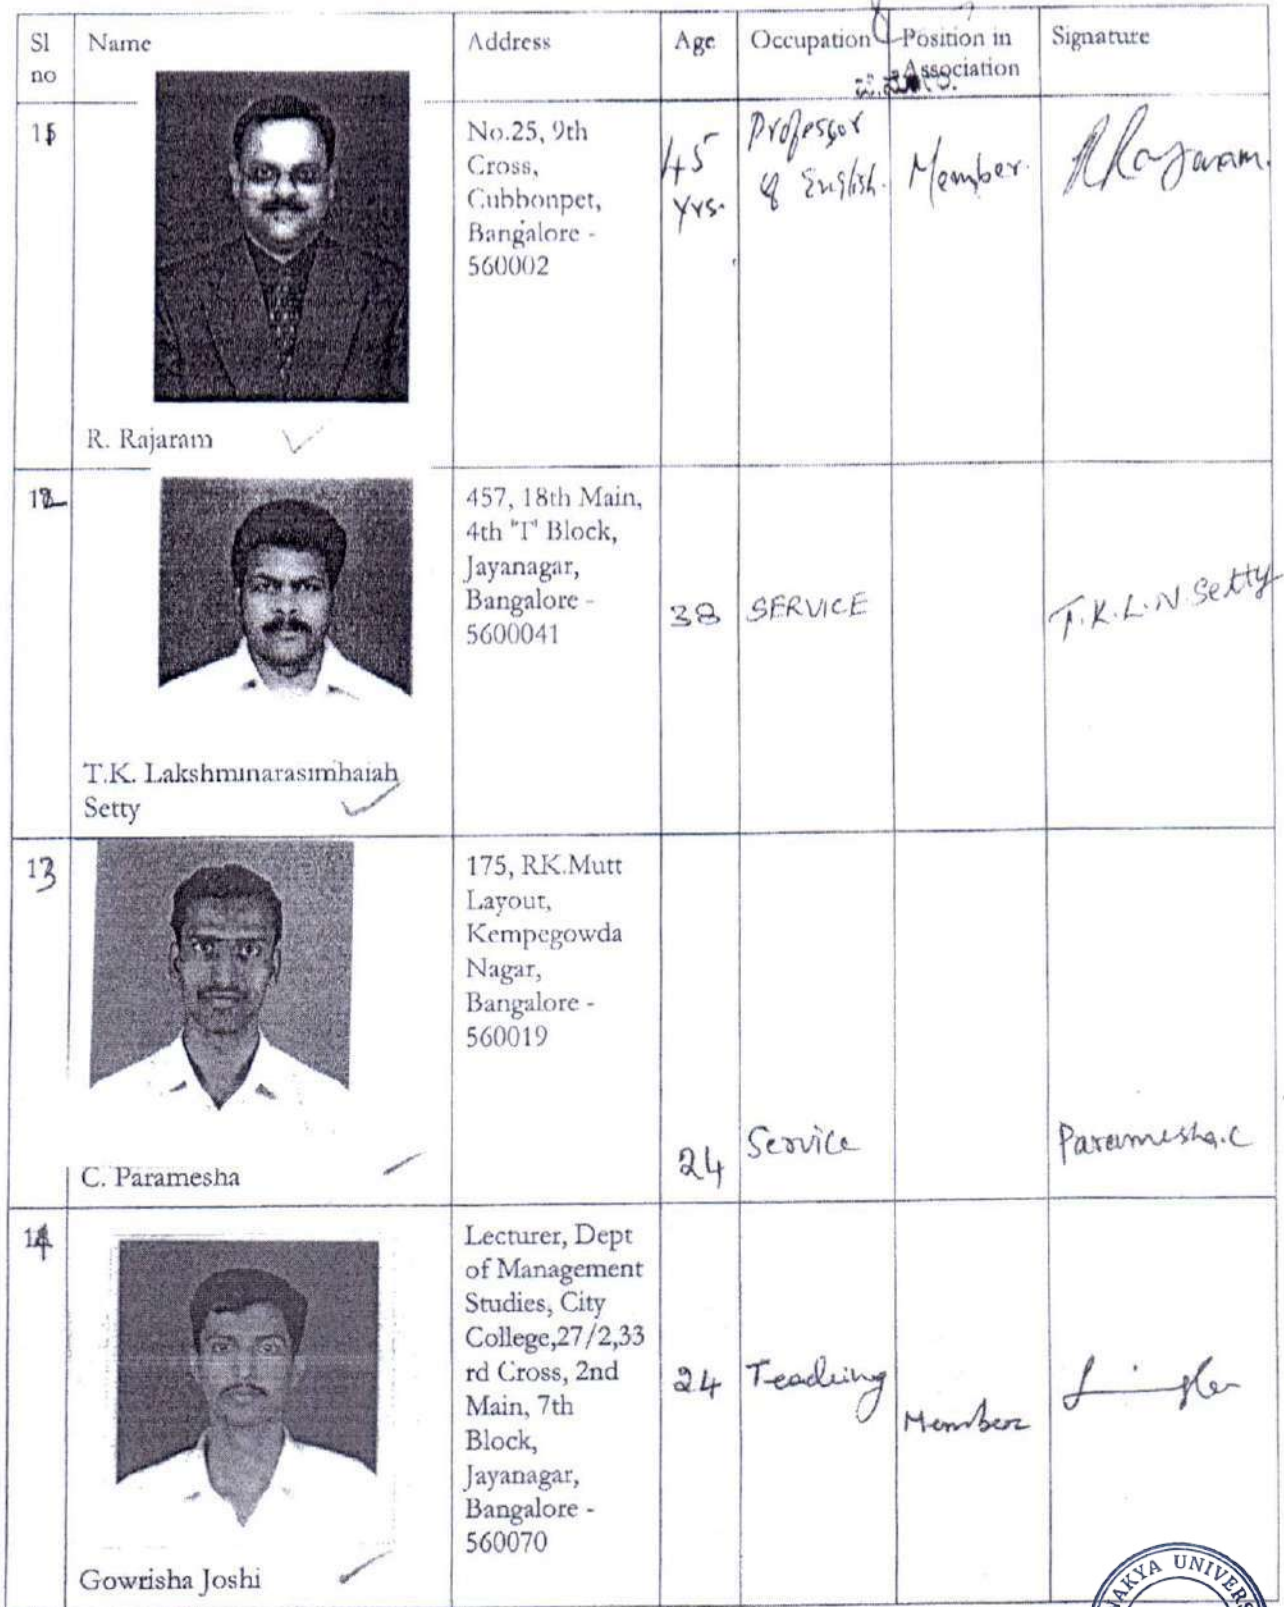 Sl no
Name
Address
Age
Occupation
Position in
Association
Signature
11
No.25, 9th
Cross,
Cubbonpet,
Bangalore -
560002
45
Yrs.
Professor
of English.
Member.
RRajaram.
R. Rajaram
12
457, 18th Main,
4th "T" Block,
Jayanagar,
Bangalore -
5600041
38
SERVICE
T.K.L.N.Setty
T.K. Lakshminarasimhaiah
Setty
13
175, RK.Mutt
Layout,
Kempegowda
Nagar,
Bangalore -
560019
24
Service
Paramesha.C
C. Paramesha
14
Lecturer, Dept
of Management
Studies, City
College,27/2,33
rd Cross, 2nd
Main, 7th
Block,
Jayanagar,
Bangalore -
560070
24
Teaching
Member
Gowrisha Joshi